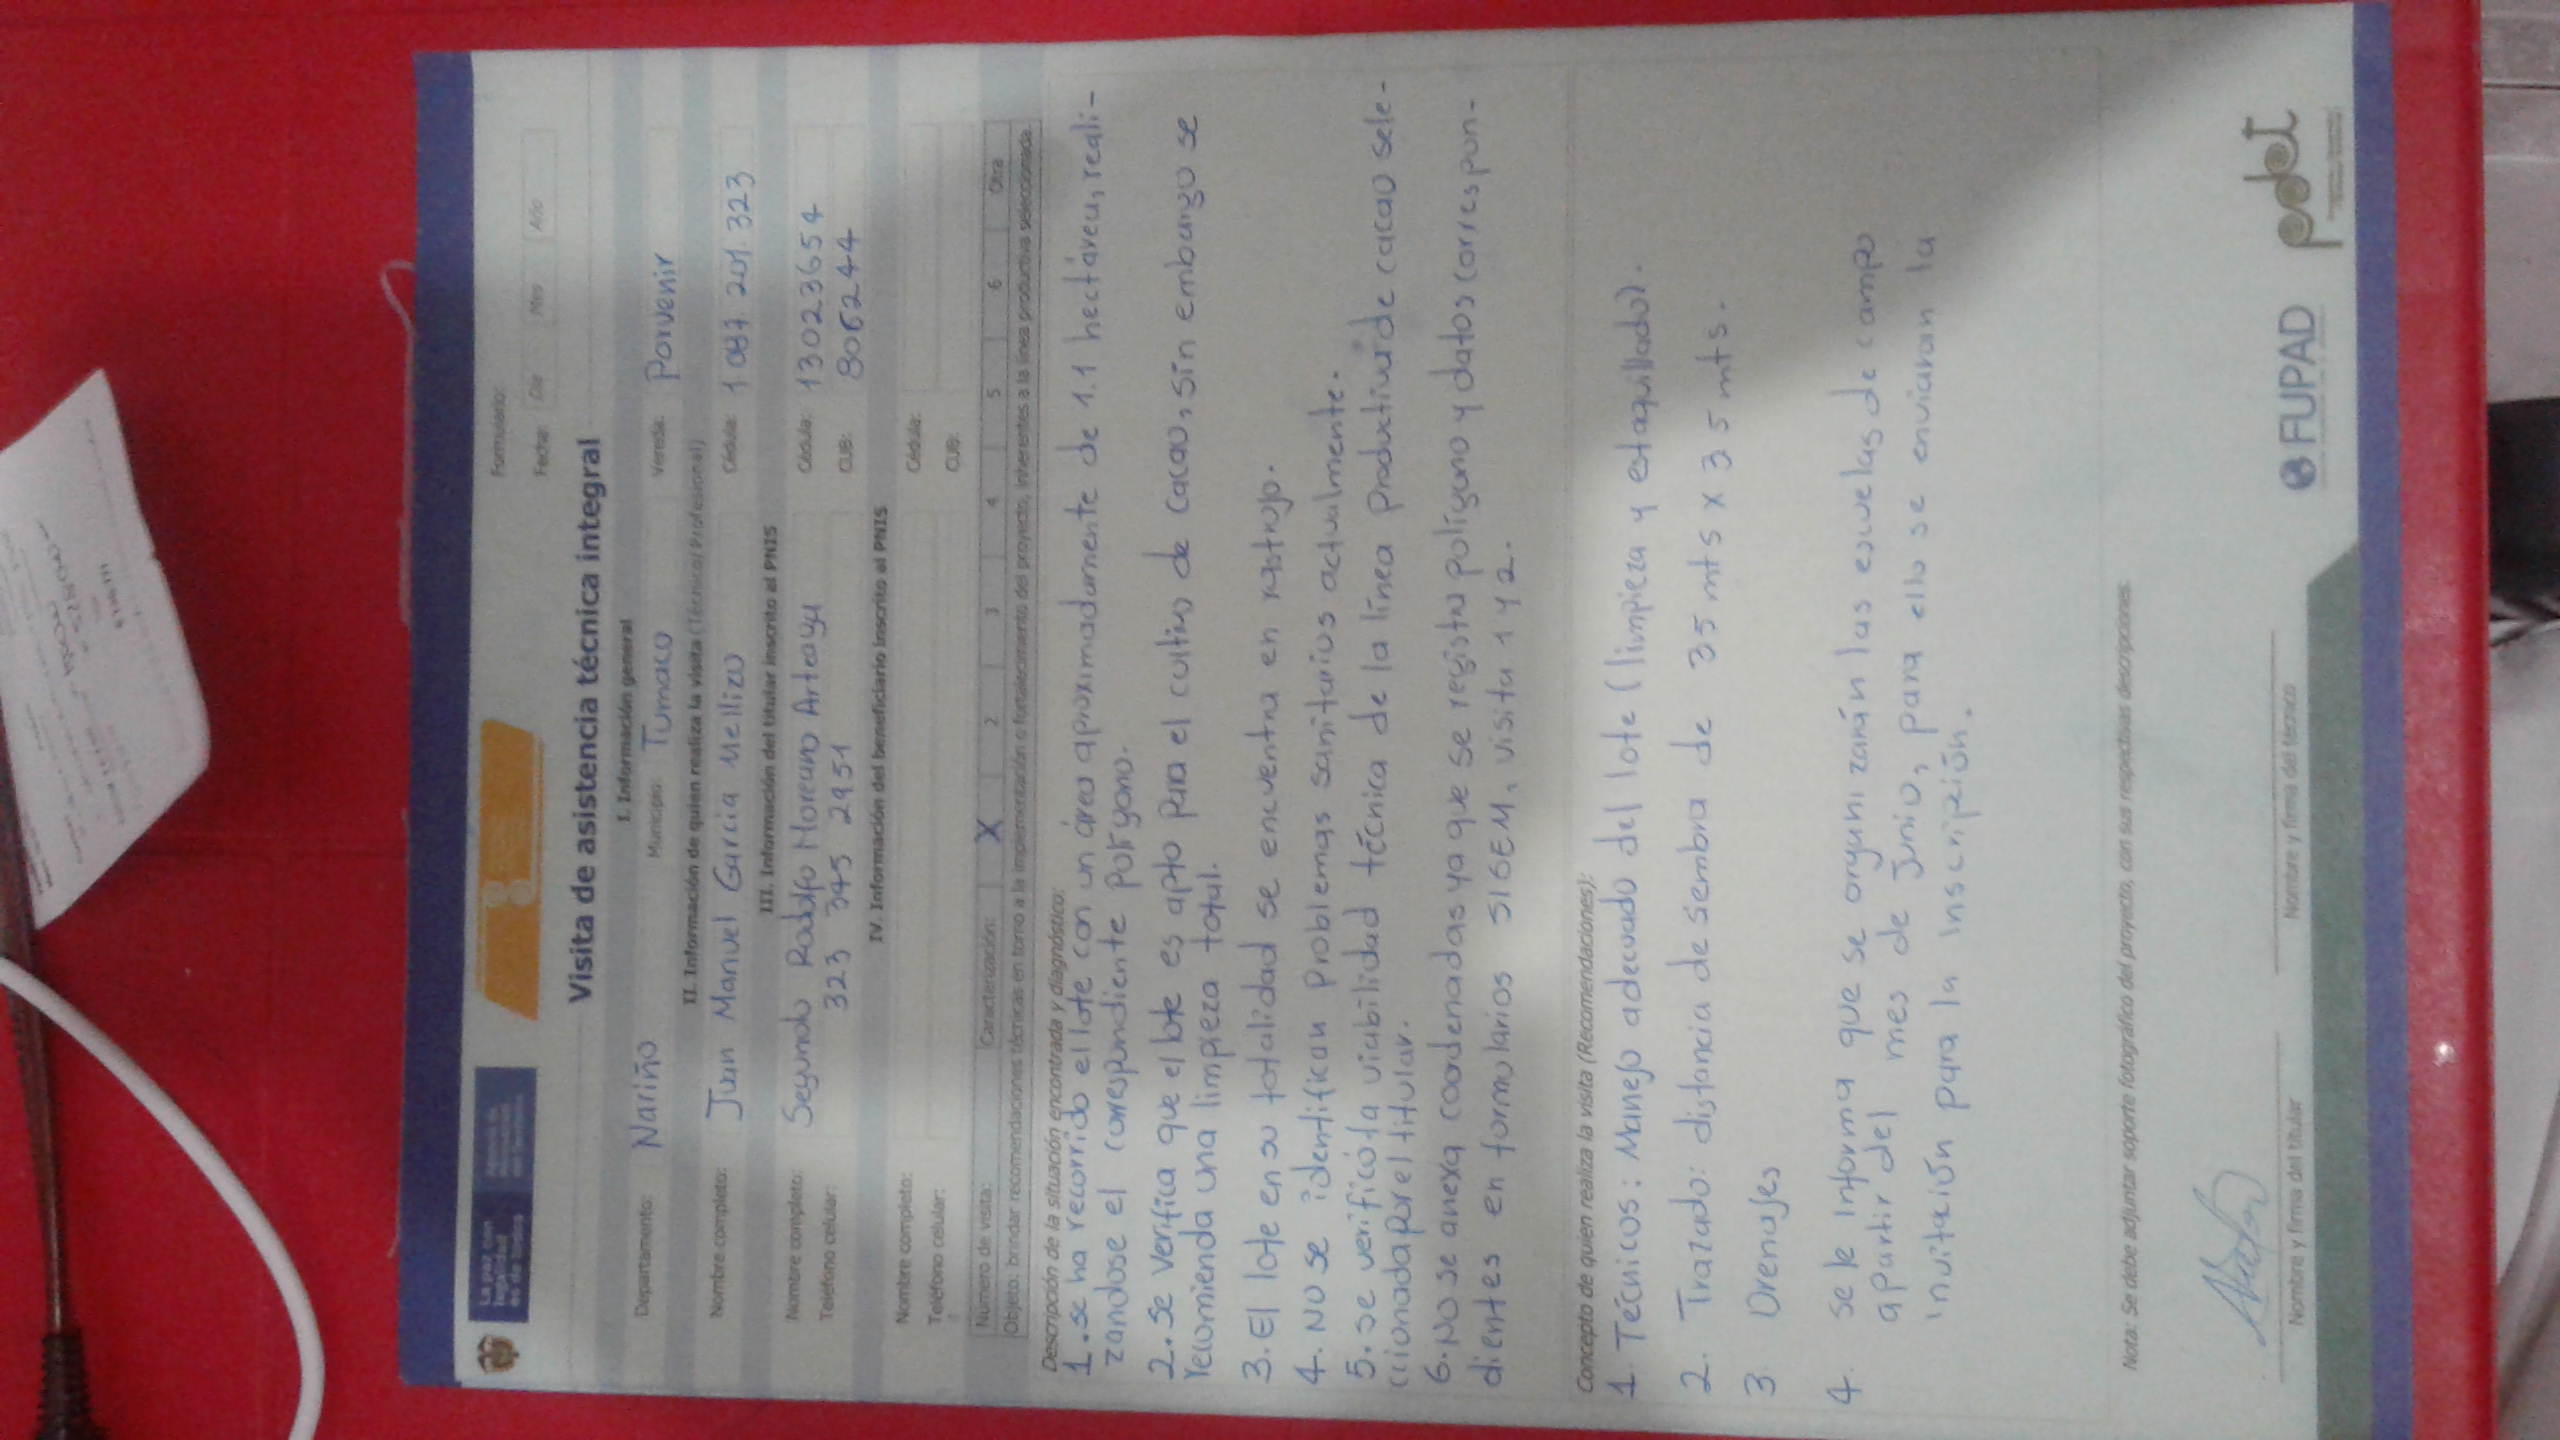 La paz con
legalidad
es de todos
Formulario:
Fecha: Día Mes Año
Visita de asistencia técnica integral
I. Información general
Departamento: Nariño Municipio: Tumaco Vereda: Porvenir
II. Información de quien realiza la visita (Técnico/ Profesional)
Nombre completo: Juan Manuel Garcia Mellizo Cédula: 1 087 201. 323
III. Información del titular inscrito al PNIS
Nombre completo: Segundo Rodolfo Moreano Arteaga Cédula: 13023654
Teléfono celular: 323 345 2951 CUB: 8066244
IV. Información del beneficiario inscrito al PNIS
Nombre completo: Cédula:
Teléfono celular: CUB:
Número de visita: Caracterización: X 2 3 4 5 6 Otra
Objeto: brindar recomendaciones técnicas en torno a la implementación o fortalecimiento del proyecto, inherentes a la línea productiva seleccionada.
Descripción de la situación encontrada y diagnóstico:
1. se ha recorrido el lote con un área aproximadamente de 1.1 hectárea, reali-
zandose el correspondiente polígono.
2. Se verifica que el lote es apto para el cultivo de cacao, sin embargo se
recomienda una limpieza total.
3. El lote en su totalidad se encuentra en rastrojo.
4. No se identifican problemas sanitarios actualmente.
5. se verificó la viabilidad técnica de la línea productiva de cacao sele-
ccionada por el titular.
6. No se anexa coordenadas ya que se registra polígono y datos correspon-
dientes en formularios SISEM, visita 1 y 2.
Concepto de quien realiza la visita (Recomendaciones):
1 Técnicos: Manejo adecuado del lote (limpieza y estaquillado).
2. Trazado: distancia de sembra de 35 mts x 35 mts.
3 Drenajes
4. se le informa que se organizarán las escuelas de campo
apartir del mes de Junio, para ello se enviaran la
invitación para la inscripción.
Nota: Se debe adjuntar soporte fotográfico del proyecto, con sus respectivas descripciones.
Nombre y firma del titular Nombre y firma del técnico
FUPAD pdet